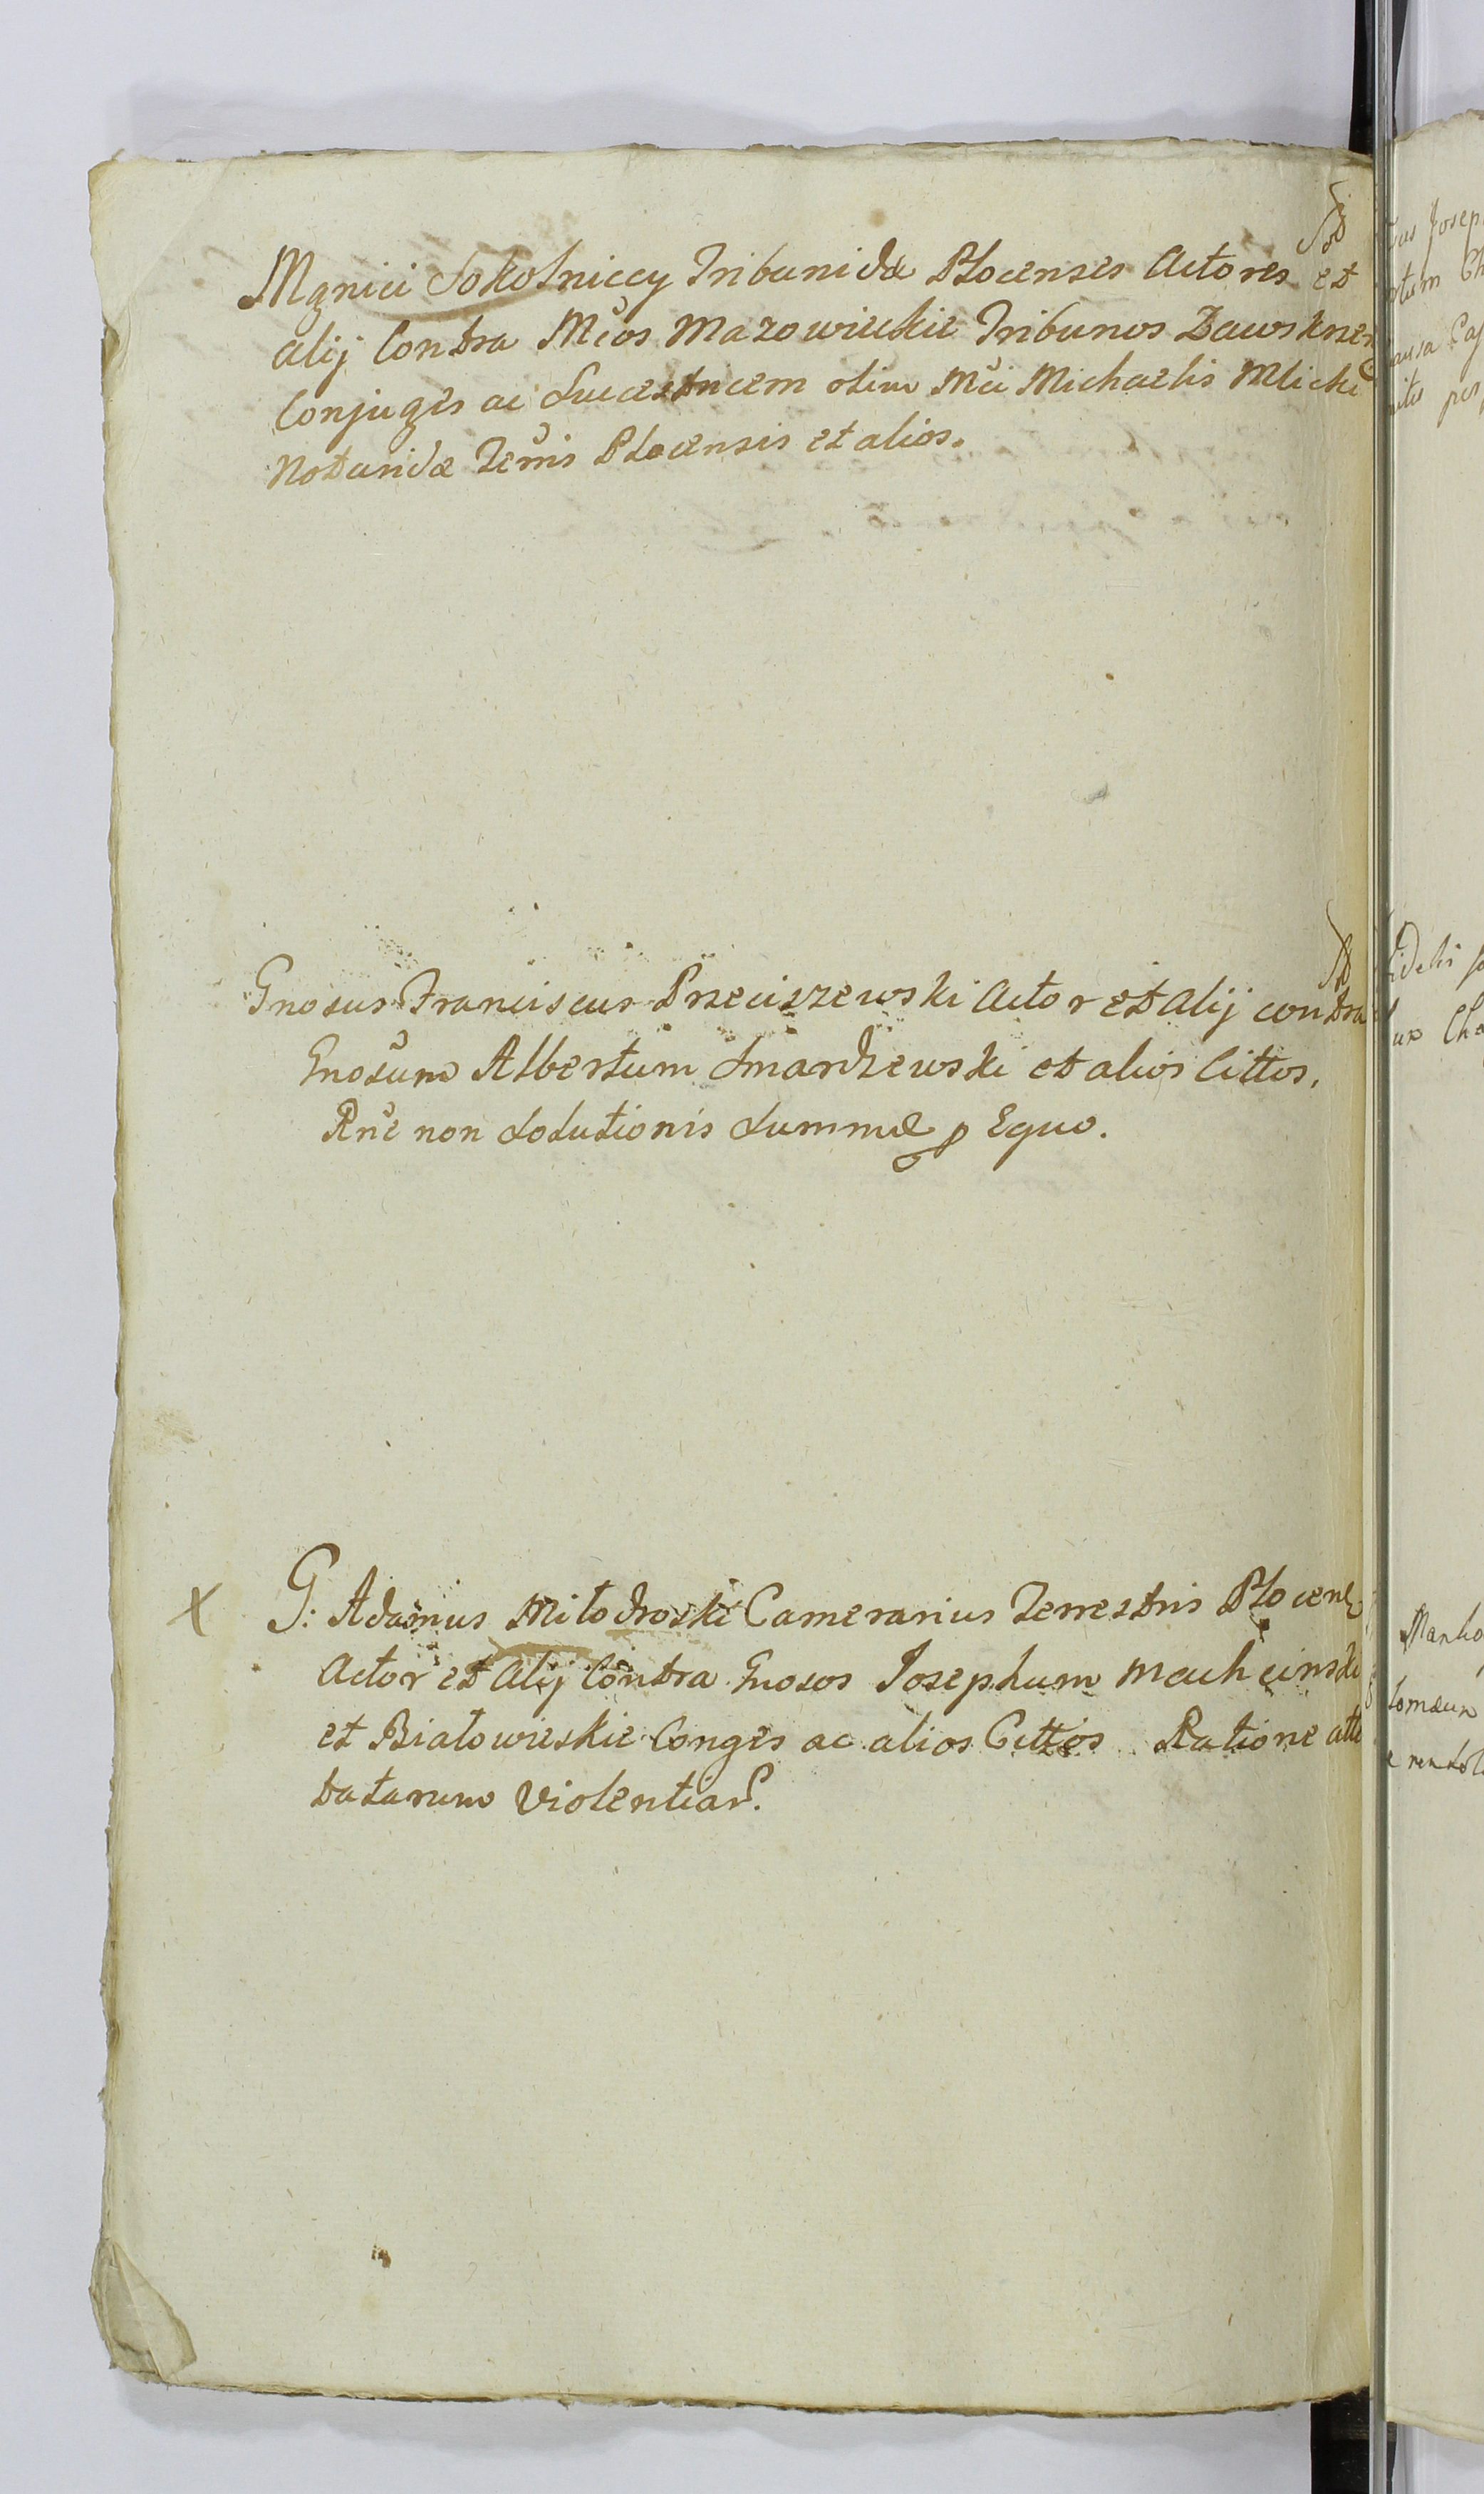 Mgnici Sokolniccy Tribunidæ Plocenses Actores et
alij Contra Mĉos Mazowieckie Tribunos Zawskrzen
Conjuges ac Successricem olim Mĉi Michaelis Mlicki
Notaridæ Terris Plocensis et alios.
Gnosus Franciscus Przeciszewski Actor et Alij contra
Gnosum Albertum Smardzewski et alios Cittos,
Rne non Solutionis Summæ p Equo.
X G: Adamus Milodroski Camerarius Terrestris Plocens
Actor et Alij Contra Gnosos Josephum Machcinski
et Białowieskie Conges ac alios Cittos Ratione atte
tatarum Violentiar.